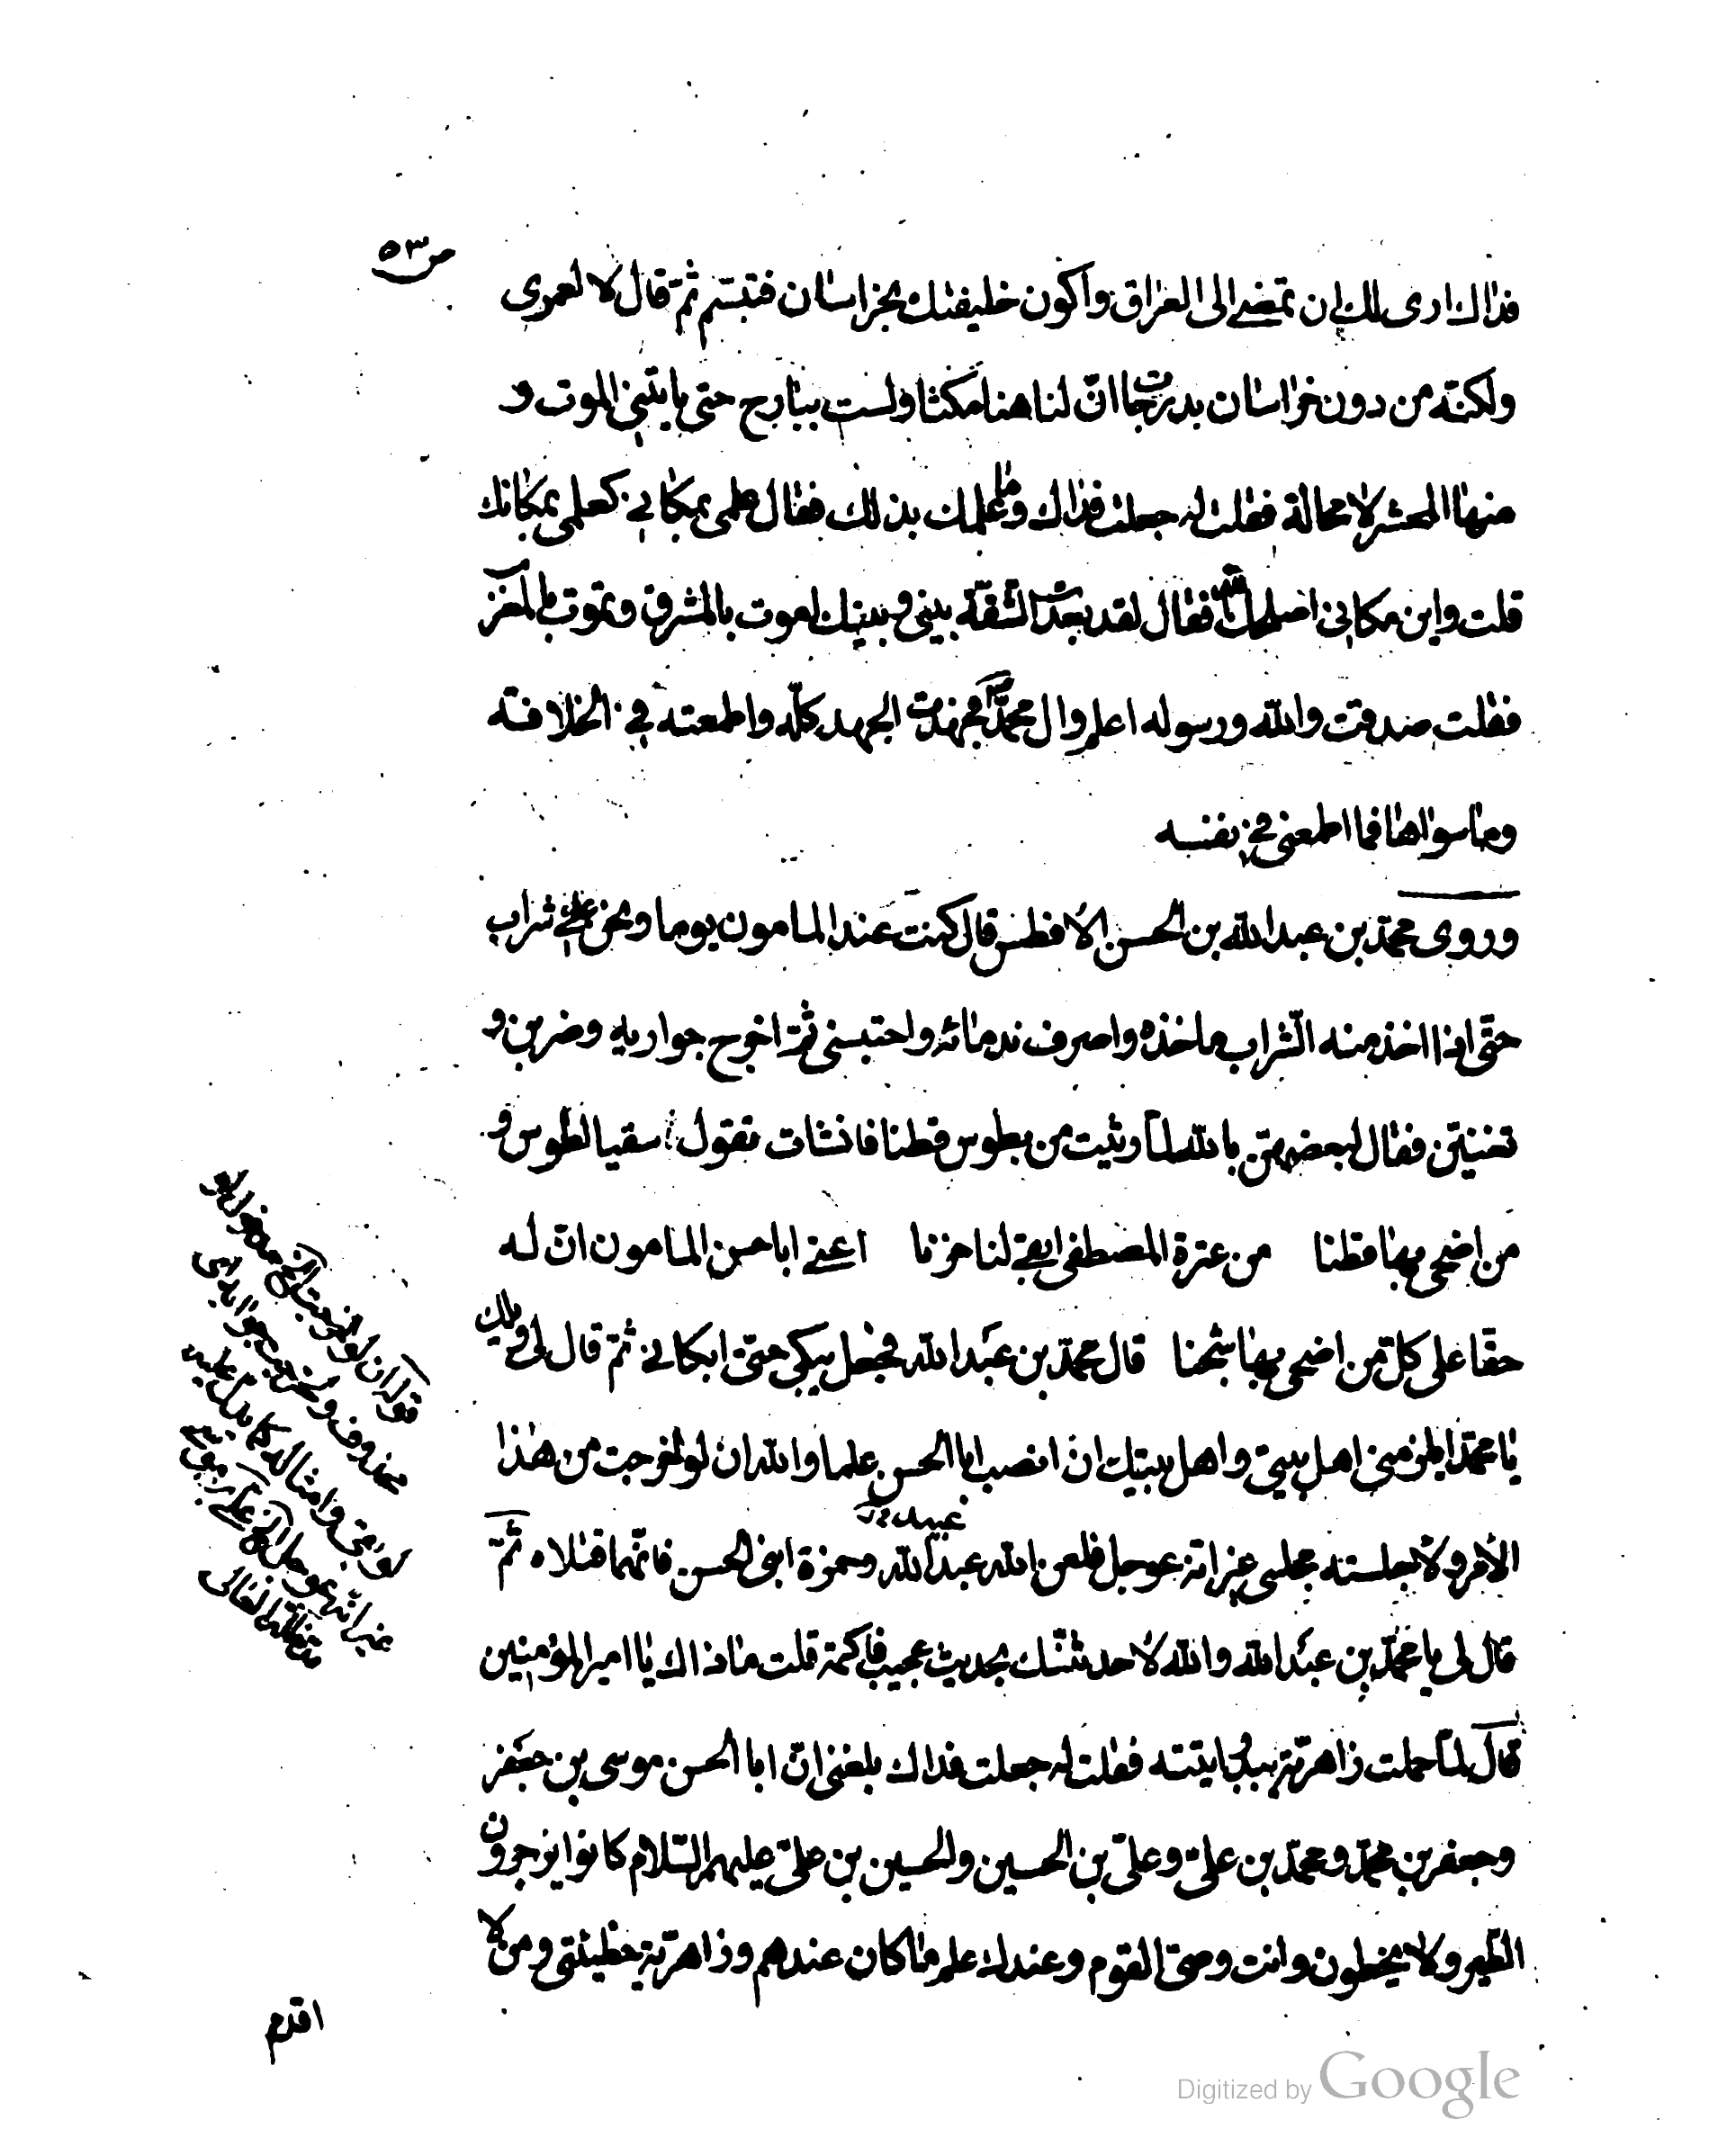 ص ٥٣
فداك ارى لك ان تمضى الى العراق واكون خليفتك بخراسان فتبسّم ثمّ قال لا لعمرى
ولكنّه من دون خراسان بدرجات انّ لنا هنا مكثا ولست ببارح حتى ياتينى الموت و
منها المحشر لا محالة فقلت له جعلت فداك وما علمك بذلك فقال علمى بمكانى كعلمى بمكانك
قلت واين مكانى اصلحك الله فقال لقد بعدت الشقّة بينى وبينك اموت بالمشرق وتموت بالمغرب
فقلت صدقت والله ورسوله اعلم وال محمّد فجهدت الجهد كلّه واطمعته فى الخلافة
وما سواها فما اطمعنى فى نفسه
وروى محمّد بن عبد الله بن الحسن الافطس قال كنت عند المامون يوما ونحن على شراب
حتّى اذا اخذ منه الشراب ماخذه واصرف ندمائه واحتبسنى ثمّ اخرج جواريه وضربن و
تغنيّن فقال لبعضهنّ بالله لما رثيت من بطوس قطنا فانشات تقول سقيا لطوس و
من اضحى بها قطنا من عترة المصطفى ابقى لنا حزنا اعنى ابا حسن المامون انّ له
حقا على كلّ من اضحى بها شجنا قال محمّد بن عبد الله فجعل يبكى حتّى ابكانى ثمّ قال لى ويلك
يا محمّد ايلومنى اهل بيتى واهل بيتك ان انصب ابا الحسن علما والله ان لو لخرجت من هذا
الأمر ولأجلسته مجلسى غير انّه عوجل فلعن الله عبد الله وحمزة ابنى الحسن فانّهما قتلاه ثمّ
عبيد
قال لى يا محمّد بن عبد الله والله لأحدثنّك بحديث عجيب فاكتمه قلت ما ذاك يا امير المؤمنين
قال لما حملت زاهريّة ببدر اتيته فقلت له جعلت فداك بلغنى انّ ابا الحسن موسى بن جعفر
وجعفر بن محمّد ومحمّد بن علىّ وعلىّ بن الحسين والحسين بن علىّ عليهم السّلام كانوا يزجرون
الطير ولا يخطون وانت وصىّ القوم وعندك علم ما كان عندهم وزاهريّة حظيتى ومن لا
اقدم